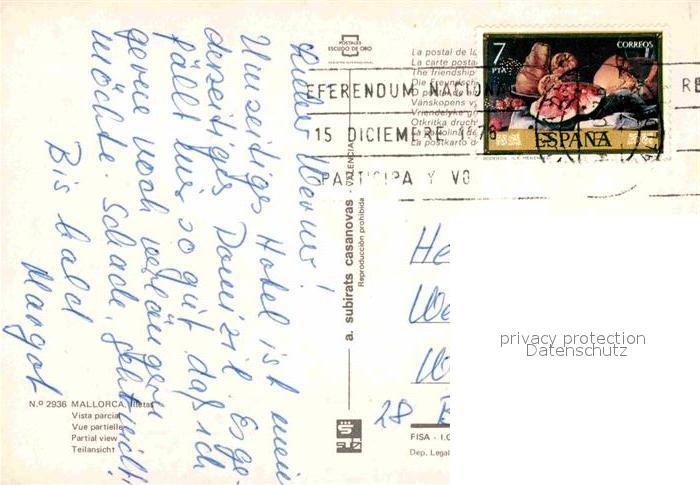 Lieber Werner!
Umseitiges Hotel ist mein
diesseitiges Domizil. Es ge-
fällt mir so gut, daß ich
gerne noch verlängern
möchte. Schade, geht nicht!
Bis bald
Margot
POSTALES
ESCUDO DE ORO
La postal de la
La carte posta
The friendship
Die Freundsch
Vänskopens v
Vriendelyke gr
Otkritka druch
La
La postkarto d
7
PTA
CORREOS
ESPAÑA
EFERENDUM NACIONA
RE
15 DICIEMBRE 1976
PARTICIPA Y VO
a. subirats casanovas - VALENCIA
Reproducción prohibida
He
We
28 B
N.º 2936 MALLORCA, Illetas
Vista parcial
Vue partielle
Partial view
Teilansicht
FISA - I.G
Dep. Legal
privacy protection
Datenschutz